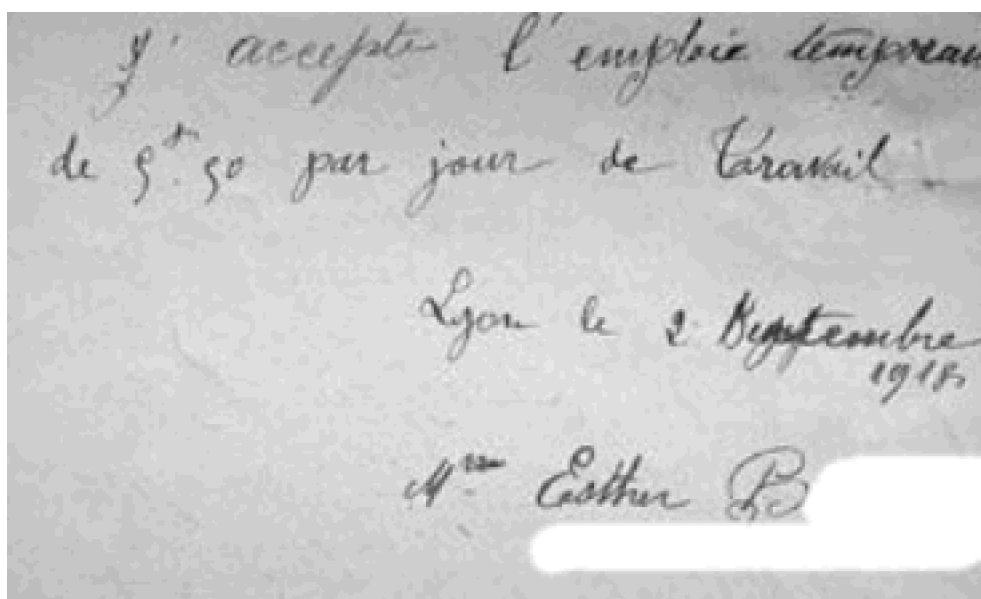 J' accepte l'emploie temporair
de 5f. 50 par jour de Travail
Lyon le 2 Septembre
1918
Mme Esther B